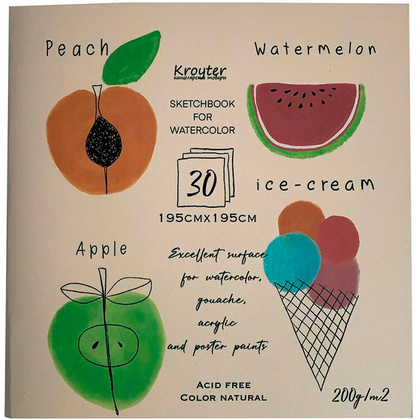 Peach
Watermelon
Kroyter
канцелярские товары
SKETCHBOOK
FOR
WATERCOLOR
30
ice-cream
195CMX195CM
Apple
Excellent surface
for watercolor,
gouache,
acrylic
and poster paints
ACID FREE
COLOR NATURAL
200g/m2